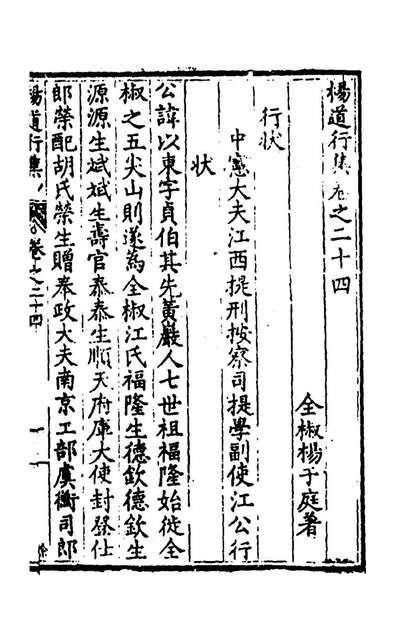 楊道行集卷之二十四
全椒楊于庭著
行狀
中憲大夫江西提刑按察司提學副使江公行
狀
公諱以東字貞伯其先黃巖人七世祖福隆始徙全
椒之五尖山則遂為全椒江氏福隆生德欽德欽生
源源生斌斌生壽官泰泰生順天府庫大使封登仕
郎榮配胡氏榮生贈奉政大夫南京工部虞衡司郎
楊道行集 卷之二十四 一